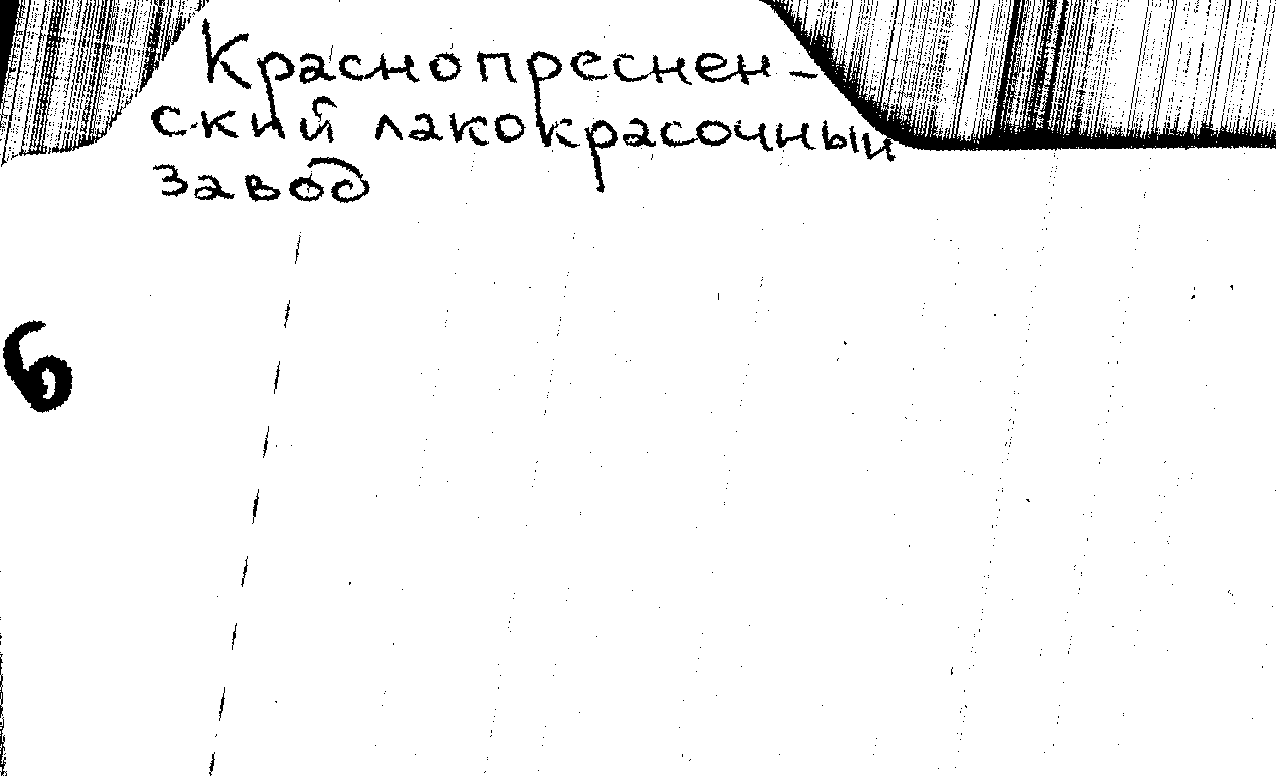 Краснопреснен-
ский лакокрасочный
завод
6